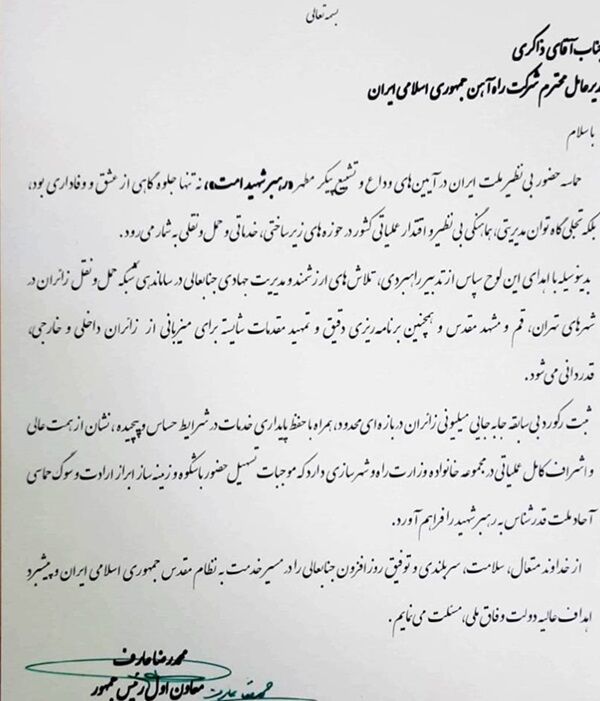 بسمه تعالی
جناب آقای ذاکری
مدیرعامل محترم شرکت راه آهن جمهوری اسلامی ایران
باسلام
حماسه حضور بی نظیر ملت ایران در آیین های وداع و تشییع پیکر مطهر «رهبر شهید امت»، نه تنها جلوه گاهی از عشق و وفاداری بود،
بلکه تجلی گاه توان مدیریتی، هماهنگی بی نظیر و اقتدار عملیاتی کشور در حوزه های زیرساختی، خدماتی و حمل و نقلی به شمار می رود.
بدینوسیله با اهدای این لوح سپاس از تدبیر راهبردی، تلاش های ارزشمند و مدیریت جهادی جنابعالی در ساماندهی شبکه حمل و نقل زائران در
شهرهای تهران، قم و مشهد مقدس و همچنین برنامه ریزی دقیق و تمهید مقدمات شایسته برای میزبانی از زائران داخلی و خارجی،
قدردانی می شود.
ثبت رکورد بی سابقه جابه جایی میلیونی زائران در بازه ای محدود، همراه با حفظ پایداری خدمات در شرایط حساس و پیچیده، نشان از همت عالی
و اشراف کامل عملیاتی در مجموعه خانواده وزارت راه و شهرسازی دارد که موجبات تسهیل حضور باشکوه و زمینه ساز ابراز ارادت و سوگ حماسی
آحاد ملت قدرشناس به رهبر شهید را فراهم آورد.
از خداوند متعال، سلامت، سربلندی و توفیق روزافزون جنابعالی را در مسیر خدمت به نظام مقدس جمهوری اسلامی ایران و پیشبرد
اهداف عالیه دولت وفاق ملی، مسئلت می نمایم.
محمدرضا عارف
معاون اول رئیس جمهور